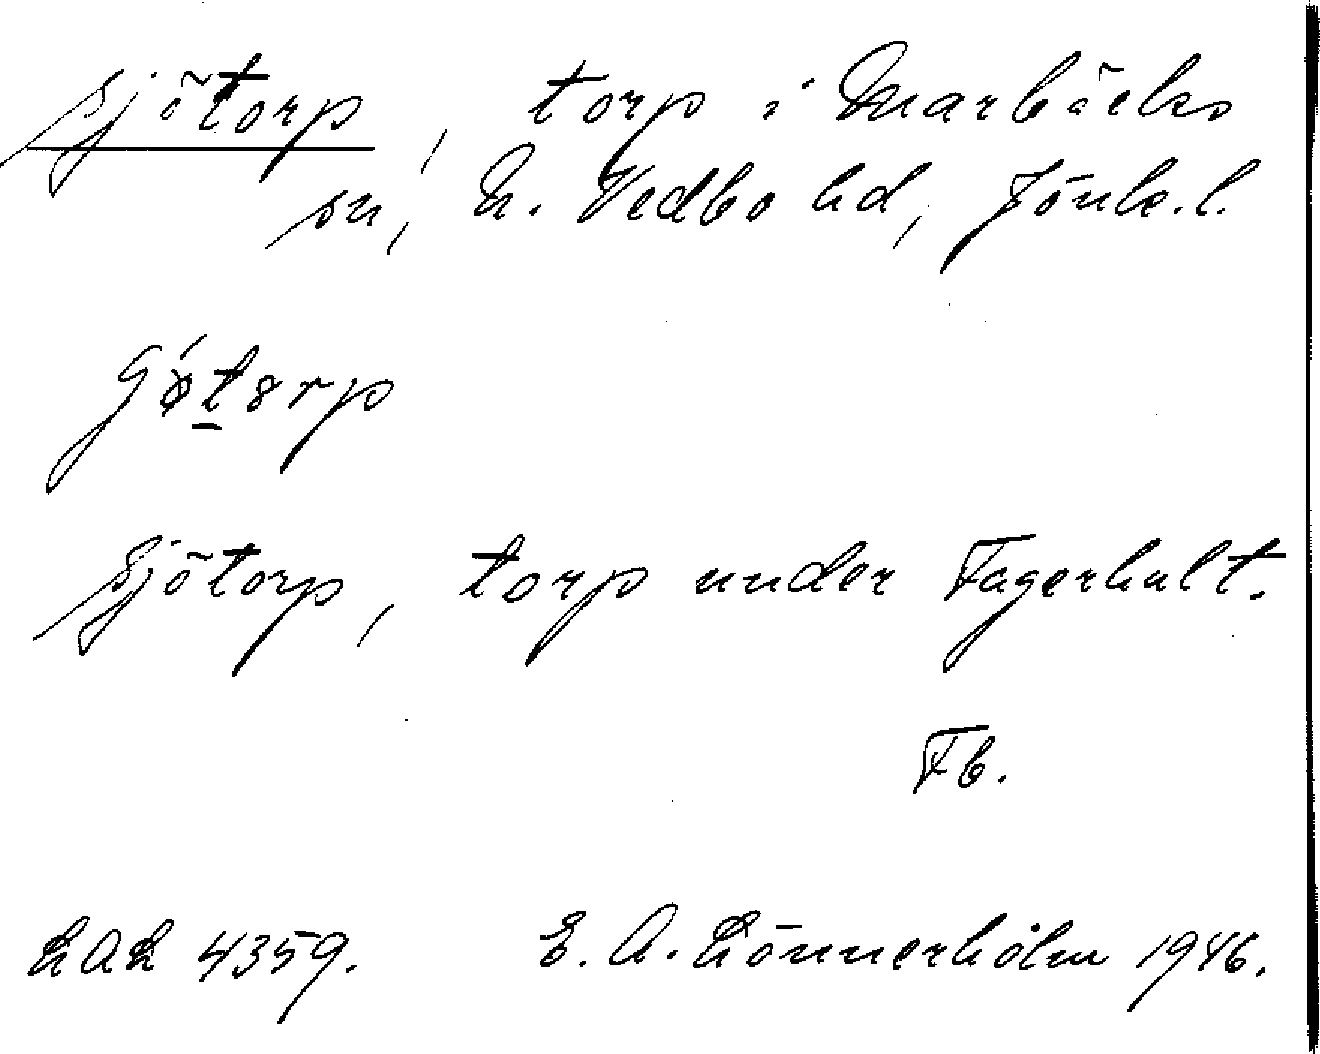 Sjötorp, torp i Marbäcks
sn, N. Vedbo hd, Jönk.l.
Sjötorp, torp under Fagerhult.
Fb.
LAL 4359. E. A. Lönnerholm 1946.